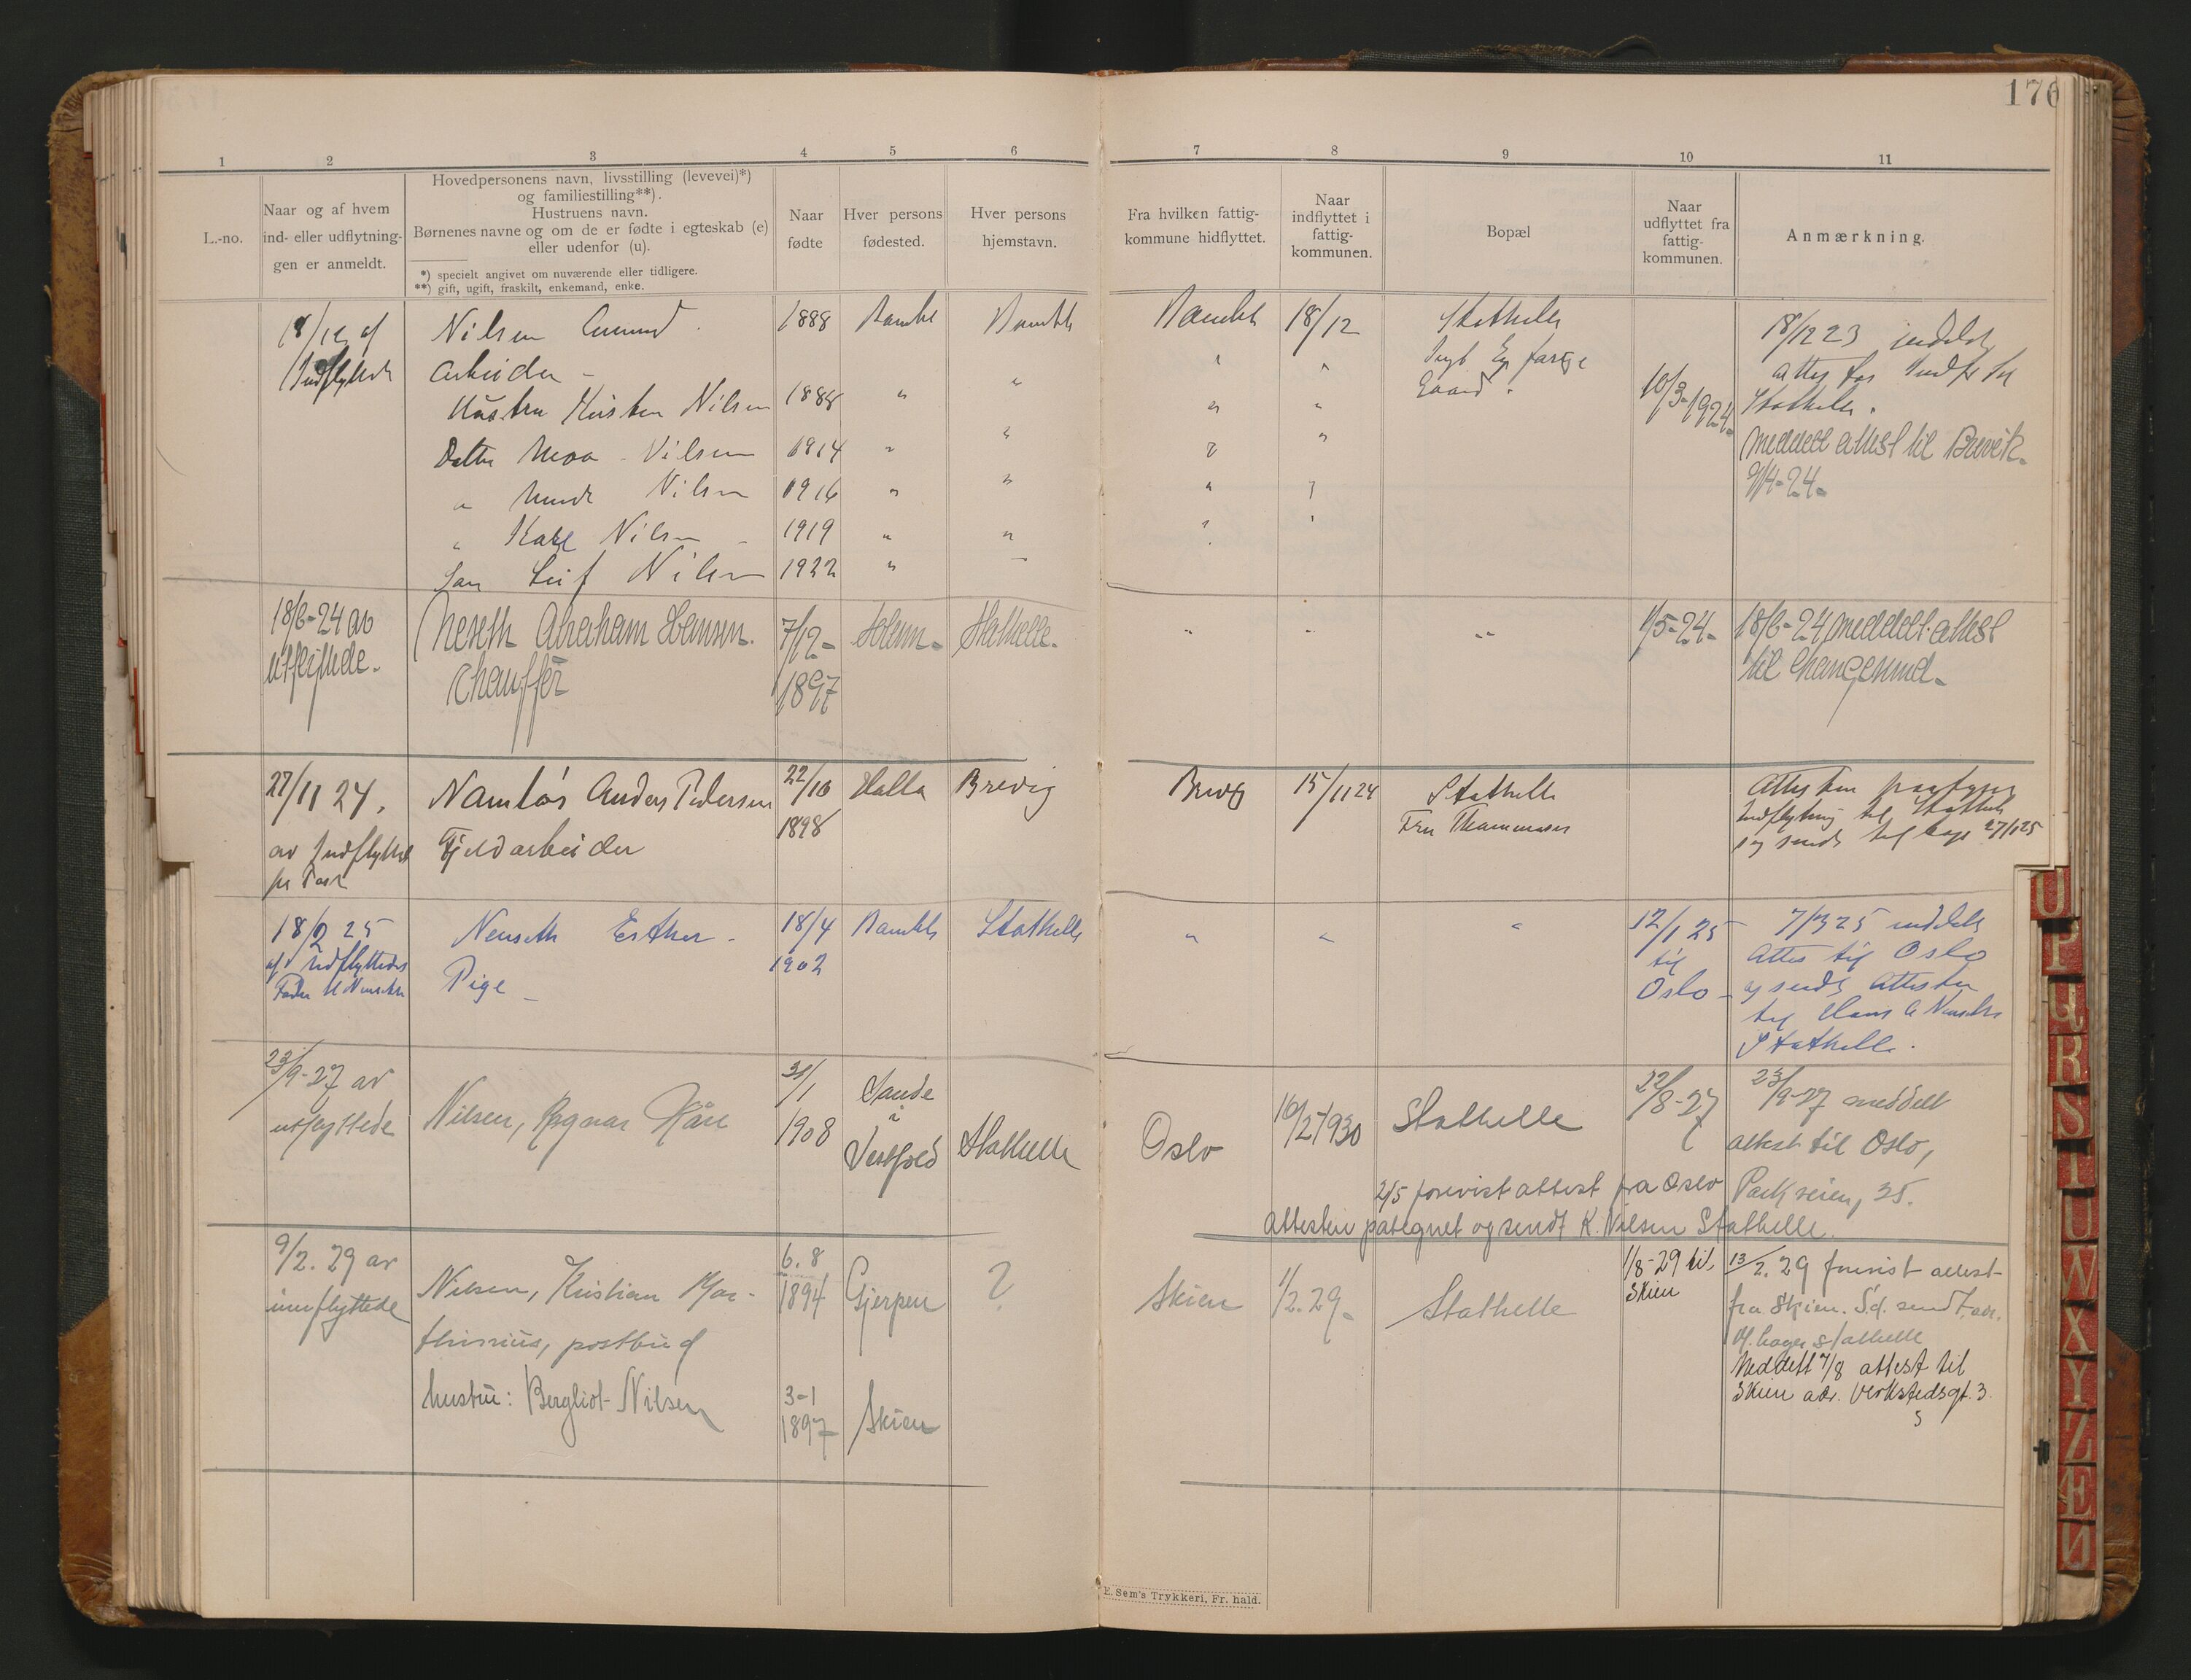 176
1 2 3 4 5 6 7 8 9 10 11
L.-no.
Naar og af hvem
ind- eller udflytning-
gen er anmeldt.
Hovedpersonens navn, livsstilling (levevei)*)
og familiestilling**).
Hustruens navn.
Børnenes navne og om de er fødte i egteskab (e)
eller udenfor (u).
*) specielt angivet om nuværende eller tidligere.
**) gift, ugift, fraskilt, enkemand, enke.
Naar
fødte
Hver persons
fødested.
Hver persons
hjemstavn.
Fra hvilken fattig-
kommune hidflyttet.
Naar
indflyttet i
fattig-
kommunen.
Bopæl
Naar
udflyttet fra
fattig-
kommunen.
Anmærkning.
18/12 af
Indflyttede
Nilsen 1888 Bamble Bamble Bamble 18/12 Stathelle
Arbeider -
gaard
18/12 23 meddelt
attest for Indfl til
Stathelle.
Hustru Kirsten Nilsen 1888 " " " " 10/3-1924-
Datter Moa Nilsen 1914 " " " "
" Nilsen 1916 " " " "
" Nilsen 1919 " " " "
Søn Leif Nilsen 1922 "
Meddelt attest til Brevik-
9/4-24-
18/6-24 av
utflyttede-
Neseth Abraham Hansen.
Chauffør
7/12-
1897
Stathelle-
" " "
1/5-24-
18/6-24 meddelt attest
til Langesund-
27/11 24.
av Indflyttede
pr Post
Namløs Anders Pedersen
Fjeldarbeider
22/10
1898
Halla Brevig
Brevig 15/11 24 Stathelle
Fru Thommesen
Attesten paategnet
Indflytning til Stathelle
og sendt tilbage 27/1 25
18/2 25
af Udflyttedes
Fader H Nenseth
Nenseth Esther -
Pige -
18/4
1902
Bamble Stathelle
" " "
12/1 25
til
Oslo -
7/3 25 meddelt
Attest til Oslo
og sendt Attesten
til Hans A Nenseth
Stathelle.
23/9-27 av
utflyttede
Nilsen, Ragnar Kåre
31/1
1908
Sande
i
Vestfold
Stathelle
Oslo
16/2 1930
Stathelle
22/8-27
23/9-27 meddelt
attest til Oslo,
Parkveien, 35.
2/5 forevist attest fra Oslo
Attesten påtegnet og sendt K. Nilsen Stathelle.
9/2. 29 av
innflyttede
Nilsen, Kristian Mar-
thinius, postbud
hustru: Bergliot Nilsen
6. 8
1894
Gjerpen
?
3-1
1897
Skien
Skien
1/2. 29-
Stathelle
1/8-29 til
Skien
13/2. 29 forevist attest
fra Skien. S.d. sendt adr.
Stathelle
Meddelt 7/8 attest til
Skien adr. Verkstedsgt. 3.
E. Sem's Trykkeri, Fr. hald.
U
P
Q
R
S
T
U
W
X
Y
Z
Æ